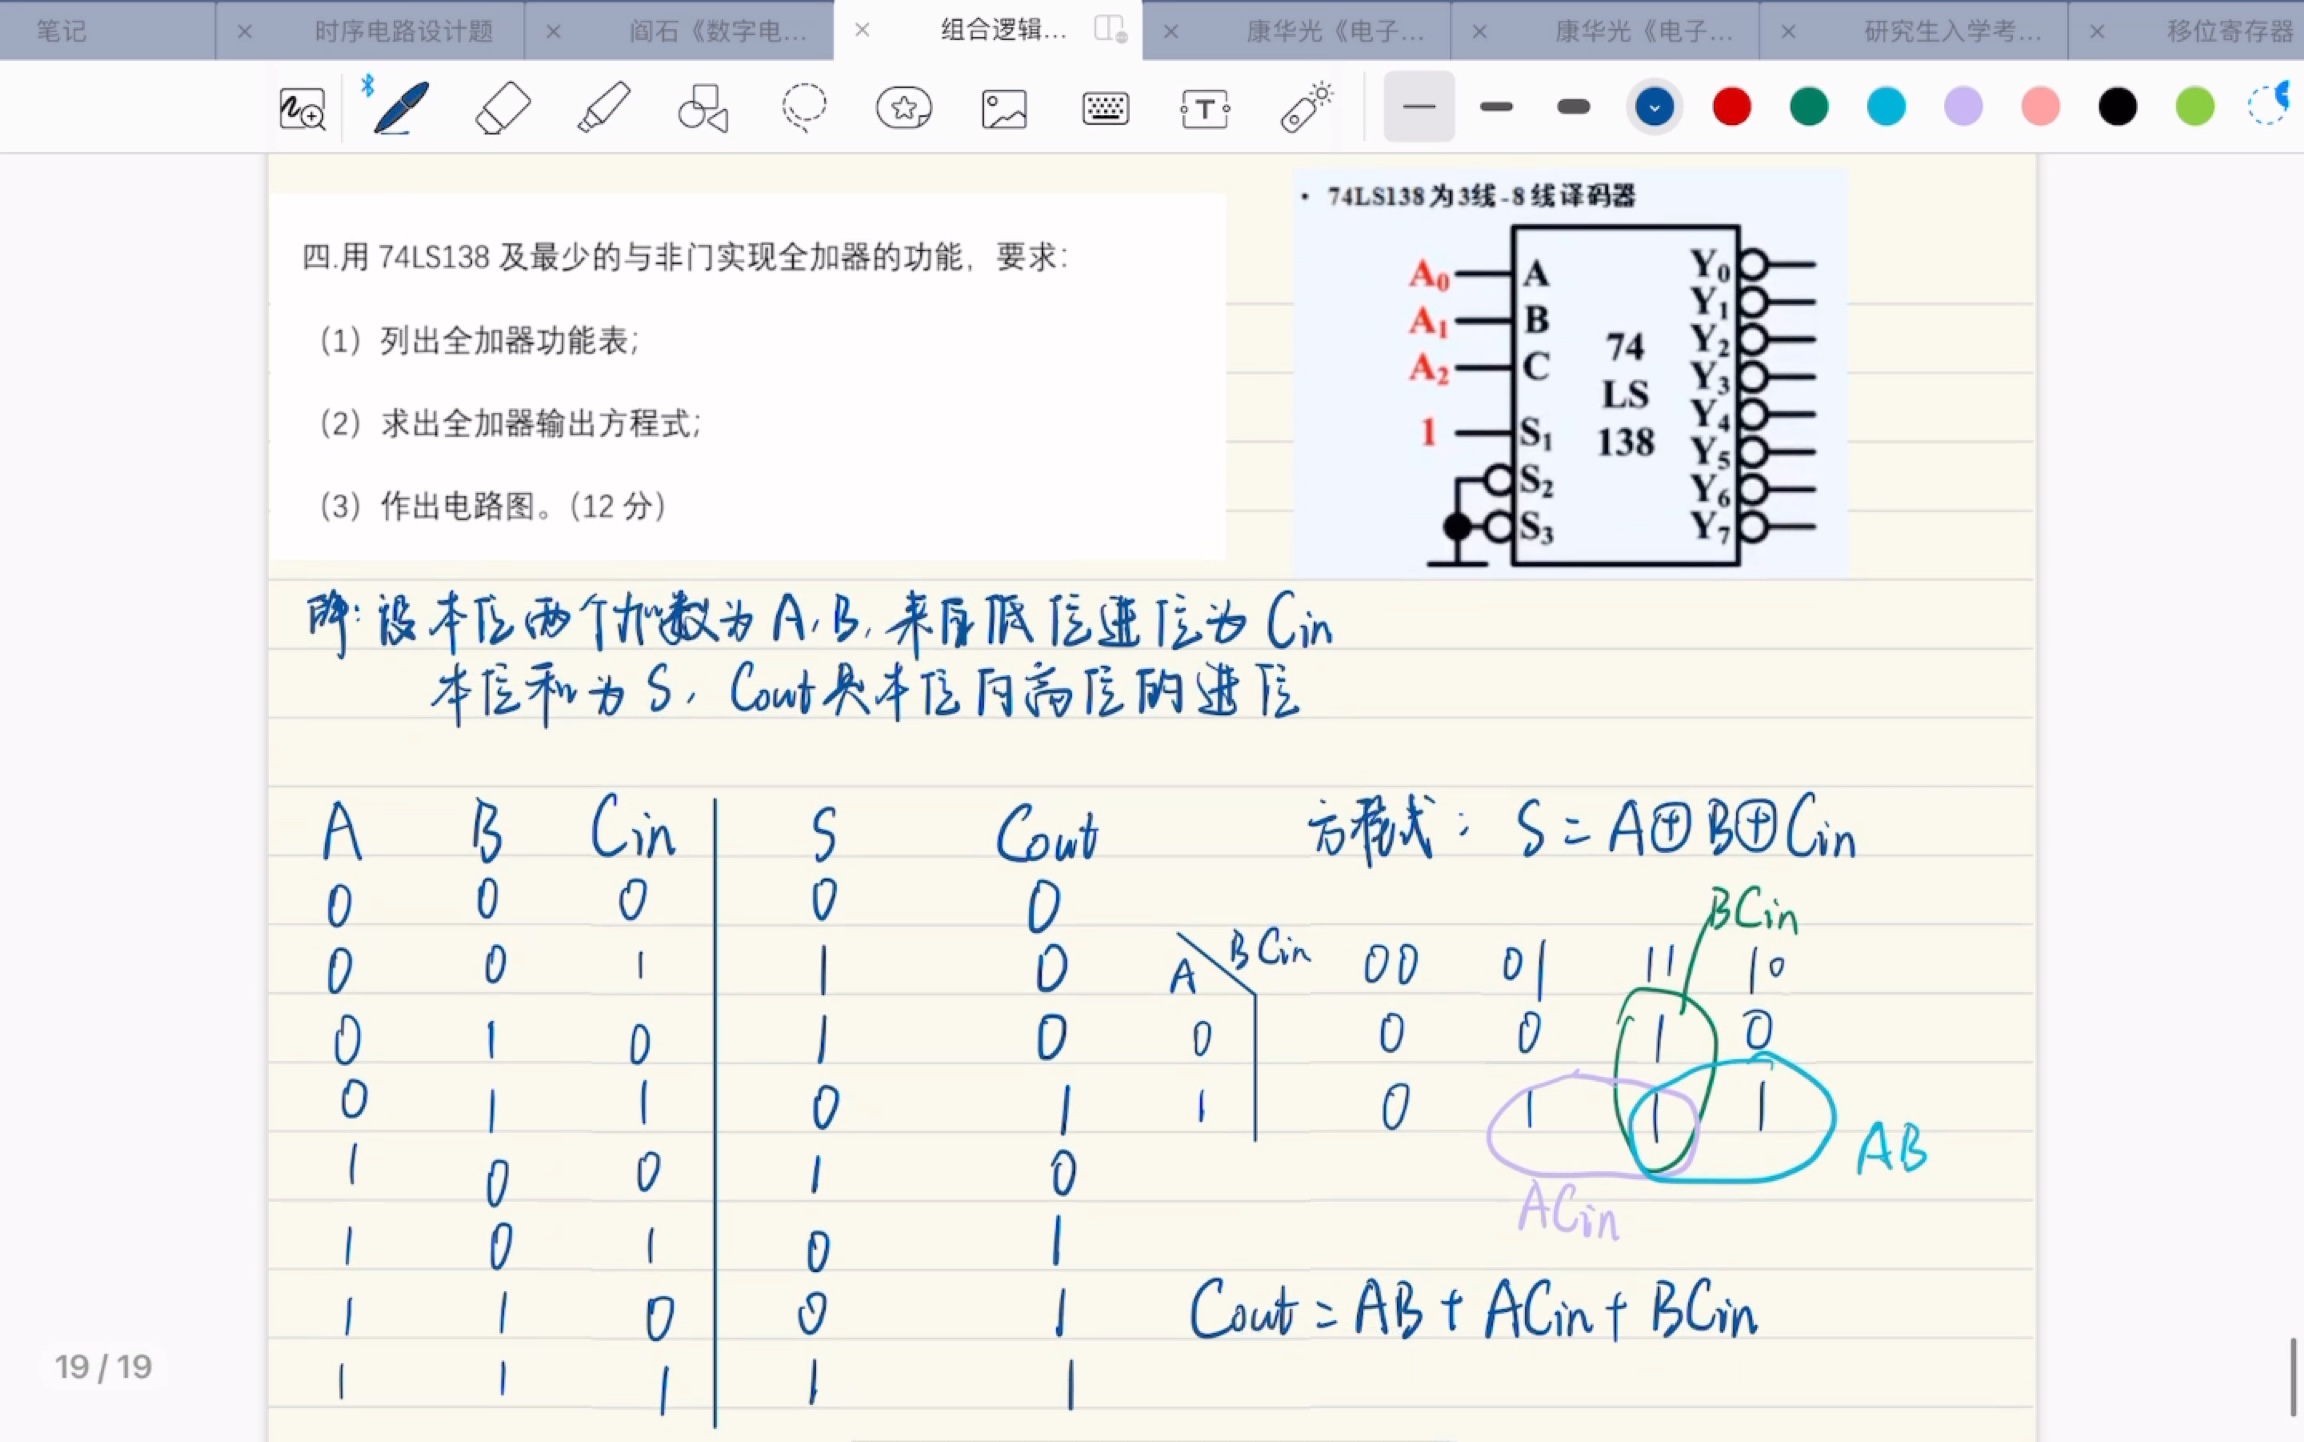 笔记
时序电路设计题
阎石《数字电...
组合逻辑...
康华光《电子...
康华光《电子...
研究生入学考...
移位寄存器
四.用 74LS138 及最少的与非门实现全加器的功能，要求：
（1）列出全加器功能表；
（2）求出全加器输出方程式；
（3）作出电路图。（12 分）
• 74LS138为3线-8线译码器
A0 A Y0
A1 B Y1
A2 C Y2
1 S1 Y3
S2 Y4
S3 Y5
Y6
Y7
74
LS
138
解：设本位两个加数为A、B，来自低位进位为Cin
本位和为S，Cout是本位向高位的进位
A B Cin S Cout
0 0 0 0 0
0 0 1 1 0
0 1 0 1 0
0 1 1 0 1
1 0 0 1 0
1 0 1 0 1
1 1 0 0 1
1 1 1 1 1
方程式： S = A⊕B⊕Cin
BCin
A BCin 00 01 11 10
0 0 0 1 0
1 0 1 1 1
AB
ACin
Cout = AB + ACin + BCin
19 / 19